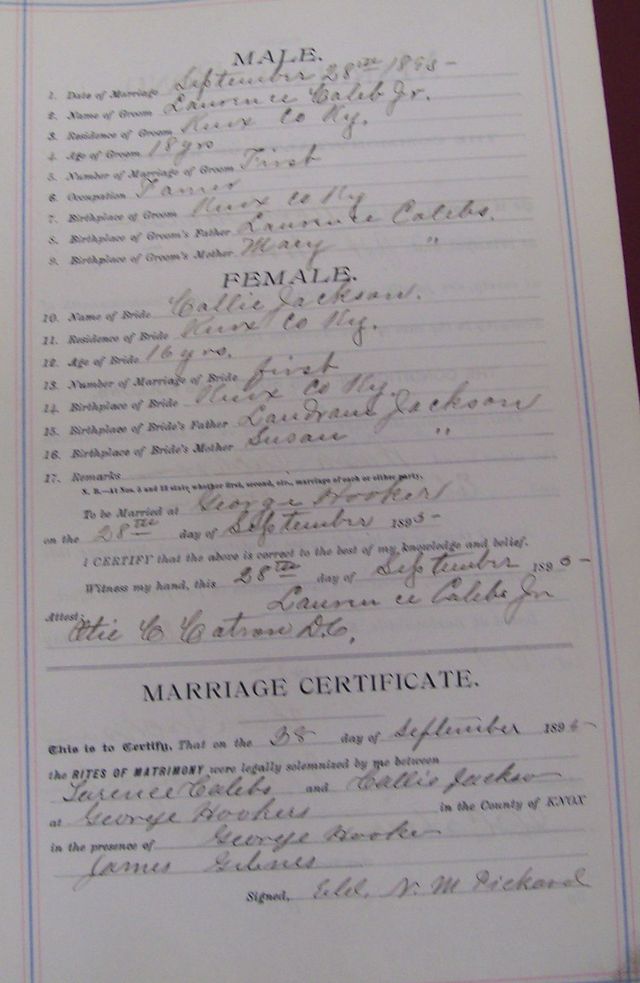 MALE.
1. Date of Marriage September 28th 1895-
2. Name of Groom Laurence Caleb Jr.
3. Residence of Groom Knox Co Ky.
4. Age of Groom 18 yrs
5. Number of Marriage of Groom First
6. Occupation Famer
7. Birthplace of Groom Knox Co Ky
8. Birthplace of Groom's Father Laurence Calebs.
9. Birthplace of Groom's Mother Mary "
FEMALE.
10. Name of Bride Callie Jackson.
11. Residence of Bride Knox Co Ky.
12. Age of Bride 16 yrs.
13. Number of Marriage of Bride first
14. Birthplace of Bride Knox Co Ky.
15. Birthplace of Bride's Father Jackson
16. Birthplace of Bride's Mother Susan "
17. Remarks
N. B.—At Nos. 5 and 13 state whether first, second, etc., marriage of each or either party.
To be Married at George Hookers
on the 28th day of September 1895-
I CERTIFY that the above is correct to the best of my knowledge and belief.
Witness my hand, this 28th day of September 1895-
Laurence Calebs Jr
Attest:
C Catron D.C.
MARRIAGE CERTIFICATE.
This is to Certify, That on the 38 day of September 1895-
the RITES OF MATRIMONY were legally solemnized by me between
Larence Calebs and Callie Jackson
at George Hookers in the County of KNOX
in the presence of George Hooker
James
Signed, Eld. N. M Pickard